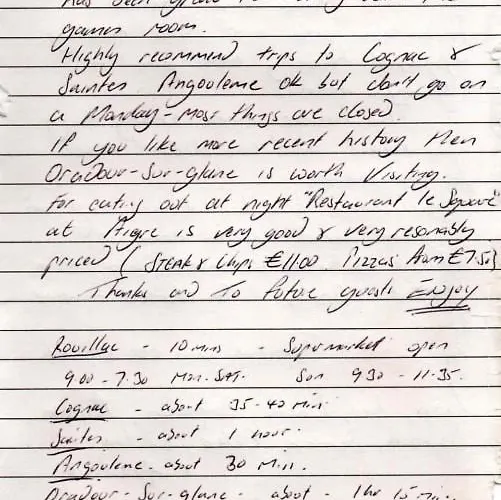 games room.
Highly recommend trips to Cognac &
Saintes Angouleme ok but don't go on
a Monday - most things are closed.
If you like more recent history then
Oradour-Sur-glane is worth Visiting.
For eating out at night "Restaurant le Square"
at Aigre is very good & very resonably
priced ( STEAK & Chips €11.00 Pizzas from €7.50)
Thanks and To future guests Enjoy
Rouillac - 10 mins - Supermarket open
9.00 - 7.30 Mon-SAT. Sun 9.30 - 11.35.
Cognac - about 35-40 Min
Saintes - about 1 hour.
Angouleme - about 30 Min.
Oradour-Sur-glane - about - 1hr 15 min.